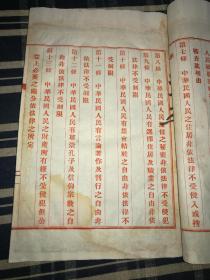 審查其理由
第七條　中華民國人民之住居非依法律不受侵入或搜
第八條　中華民國人民通信之秘密非依法律不受侵犯
第九條　中華民國人民有選擇住居及職業之自由非依
法律不受制限
第十條　中華民國人民有集會結社之自由非依法律不
受制限
第十一條　中華民國人民有言論著作及刊行之自由非
依法律不受制限
第十二條　中華民國人民有尊崇孔子及信仰宗教之自
由非依法律不受制限
第十三條　中華民國人民之財產所有權不受侵犯但公
益上必要之處分依法律之所定